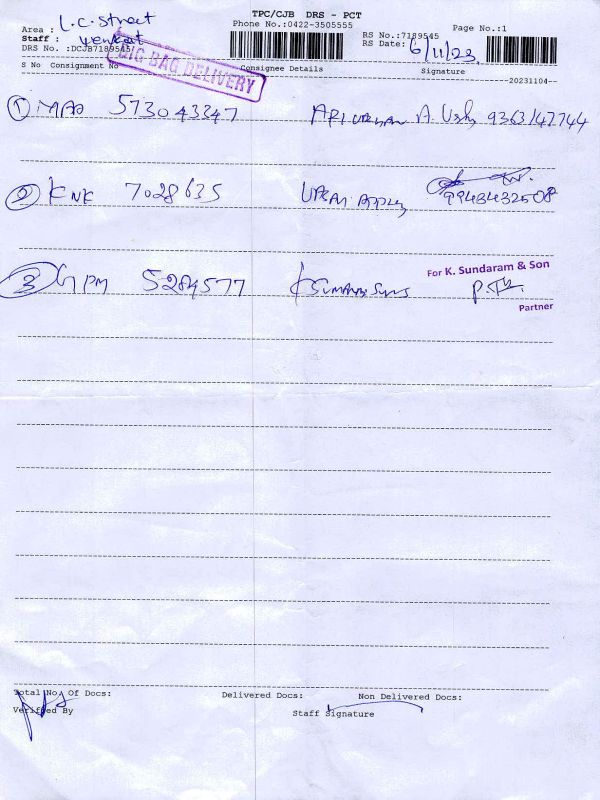 TPC/CJB DRS - PCT
Phone No:0422-3505555
Page No.:1
Area : L.C. Street
Staff : Venkat
DRS No. :DCJB7189545
RS No.:7189545
RS Date: 6/11/23
BIG BAG DELIVERY
S No Consignment No Consignee Details Signature
20231104
1 MAA 573043347 A. 9363147744
2 KNK 7028635 9943432508
3 GPM 5284577
For K. Sundaram & Son
Partner
Total No. Of Docs: Delivered Docs: Non Delivered Docs:
Verified By Staff Signature